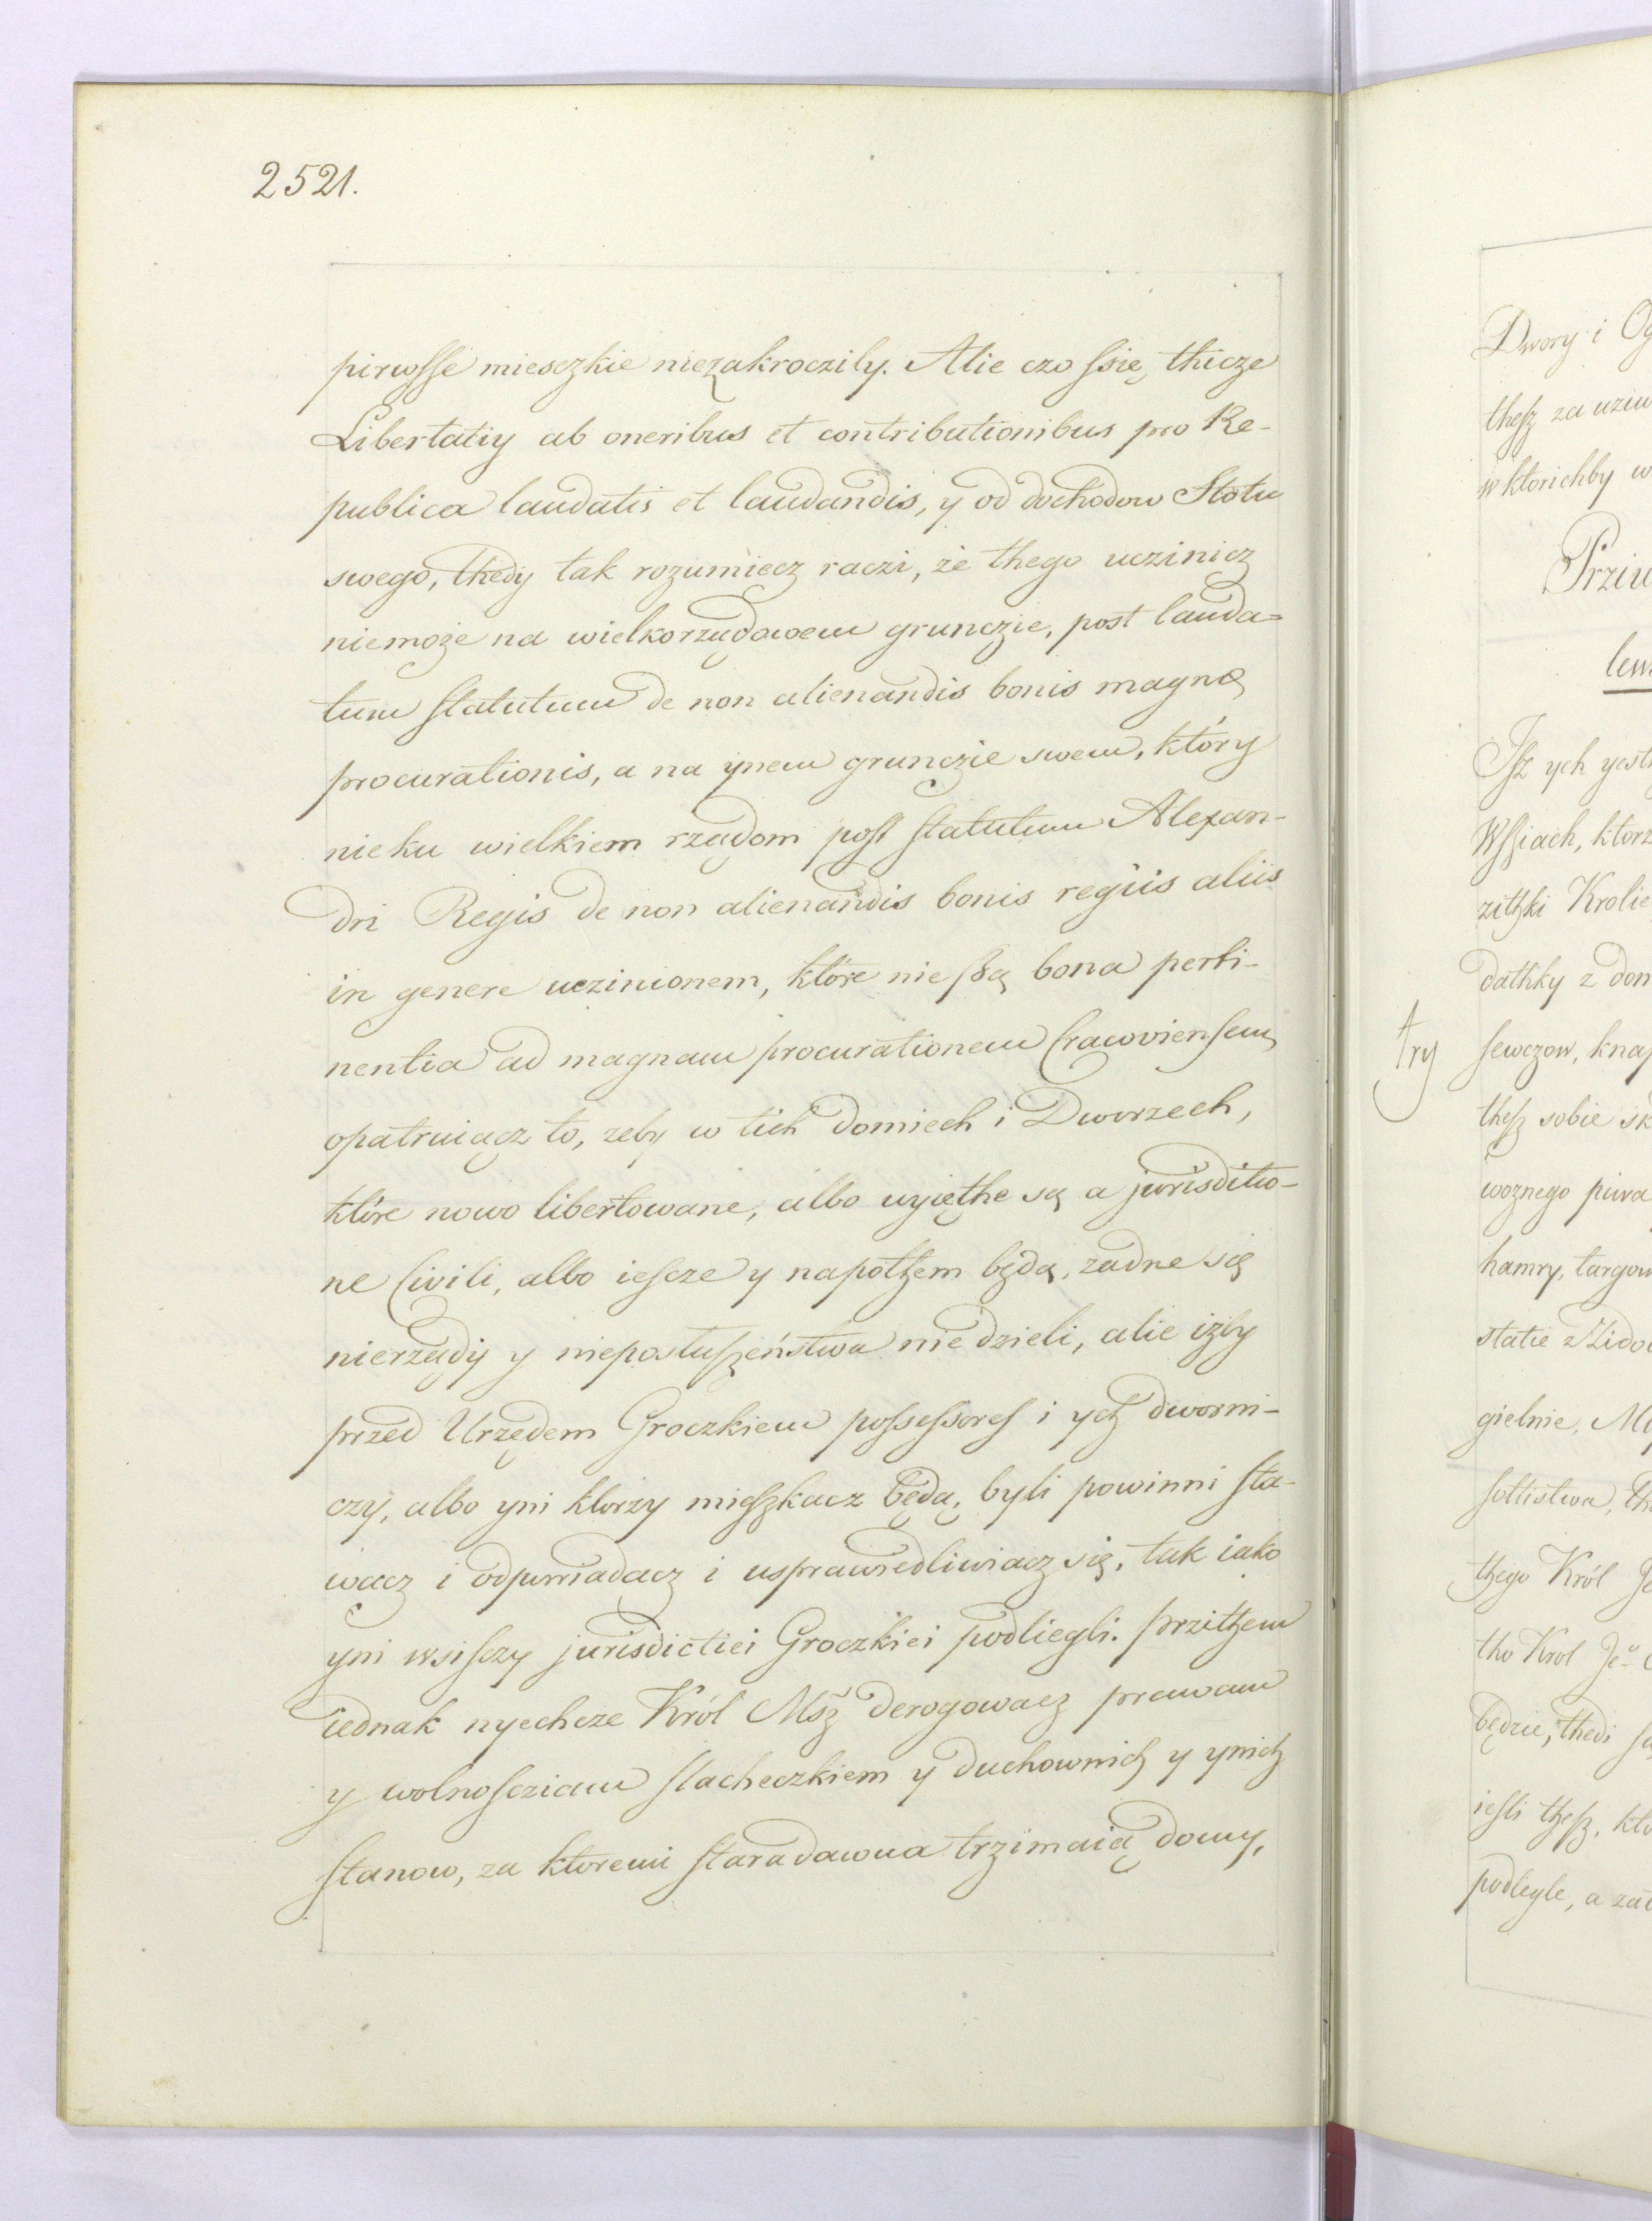 2521.
pirwsse miesczkie niezakroczily. Alie czo ssię thicze
Libertatiy ab oneribus et contributionibus pro Re-
publica laudatis et laudandis, y od dochodow Stołu
swego, thedy tak rozumiecz raczi, że thego uczinicz
niemoże na wielkorządowem grunczie, post lauda=
tum statutum de non alienandis bonis magnæ
procurationis, a na ynem grunczie swem, który
nie ku wielkiem rządom post statutum Alexan-
dri Regis de non alienandis bonis regiis aliis
in genere uczinionem, które nie ssą bona perti-
nentia ad magnam procurationem Cracoviensem
opatruiącz to, zeby w tich domiech i Dworzech,
które nowo libertowane, albo wyięthe są a jurisditio-
ne Civili, albo iescze y napothem będą, zadne się
nierządy y nieposłuszeństwa nie dzieli, alie izby
przed Urzędem Groczkiem possessores i ych dworni-
czy, albo yni ktorzy mieszkacz będą, byli powinni sta-
wacz i odpowiadacz i usprawiedliwiacz się, tak iako
yni wsisczy jurisdictiei Groczkiei podliegli. przithem
iednak nyechcze Król Msz derogowacz prawam
y wolnoscziam slacheczkiem y duchownich y ynich
stanow, za ktoremi staradawna trzimaią domy,
Dwory i
thesz za
w ktorichby
Isz ych
Wssiach,
Krolie
dathky z
try sewczow,
thesz sobie
woznego
hamry,
statie z
gielnie,
soltistwa,
thego Król
tho Krol
będzie, thedi
iesli thesz,
podlegle, a